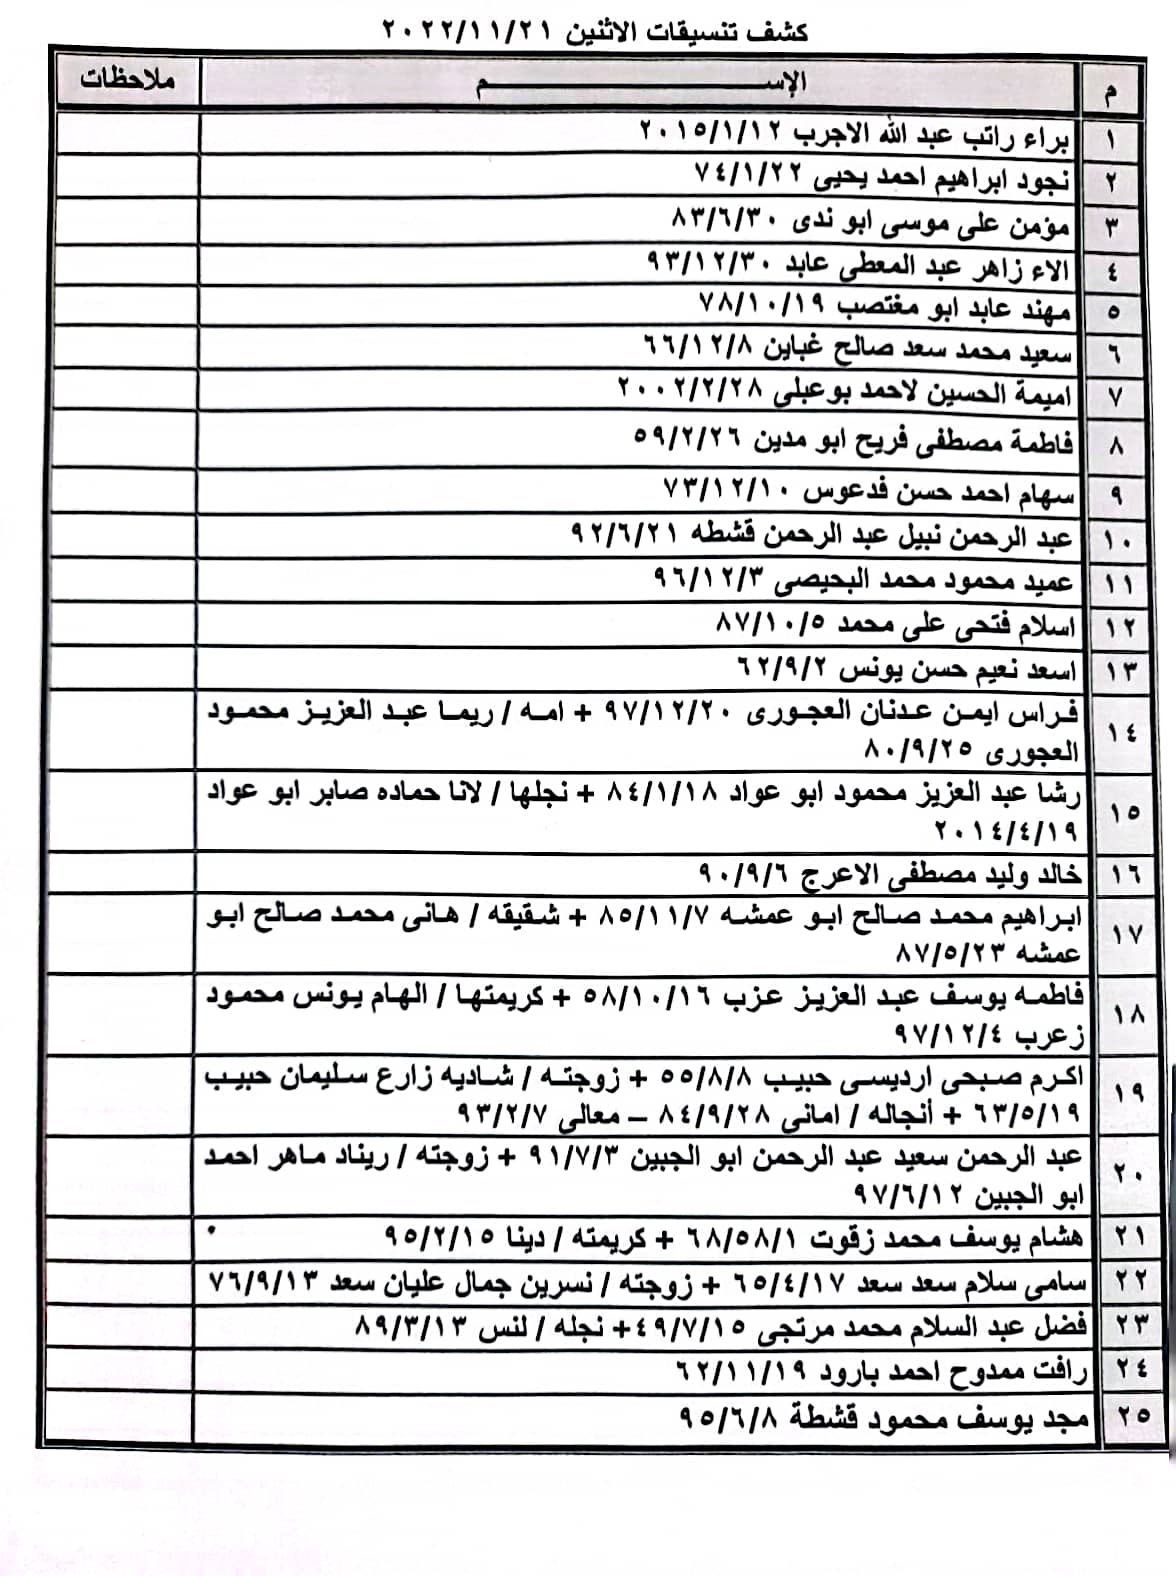 كشف تنسيقات الاثنين ٢٠٢٢/١١/٢١
م الإســـــــم ملاحظات
١ براء راتب عبد الله الاجرب ٢٠١٥/١/١٢
٢ نجود ابراهيم احمد يحيى ٧٤/١/٢٢
٣ مؤمن على موسى ابو ندى ٨٣/٦/٣٠
٤ الاء زاهر عبد المعطى عابد ٩٣/١٢/٣٠
٥ مهند عابد ابو مغتصب ٧٨/١٠/١٩
٦ سعيد محمد سعد صالح غباين ٦٦/١٢/٨
٧ اميمة الحسين لاحمد بوعبلى ٢٠٠٢/٢/٢٨
٨ فاطمة مصطفى فريح ابو مدين ٥٩/٢/٢٦
٩ سهام احمد حسن فدعوس ٧٣/١٢/١٠
١٠ عبد الرحمن نبيل عبد الرحمن قشطه ٩٢/٦/٢١
١١ عميد محمود محمد البحيصى ٩٦/١٢/٣
١٢ اسلام فتحى على محمد ٨٧/١٠/٥
١٣ اسعد نعيم حسن يونس ٦٢/٩/٢
١٤ فراس ايمن عدنان العجورى ٩٧/١٢/٢٠ + امه / ريما عبد العزيز محمود
العجورى ٨٠/٩/٢٥
١٥ رشا عبد العزيز محمود ابو عواد ٨٤/١/١٨ + نجلها / لانا حماده صابر ابو عواد
٢٠١٤/٤/١٩
١٦ خالد وليد مصطفى الاعرج ٩٠/٩/٦
١٧ ابراهيم محمد صالح ابو عمشه ٨٥/١١/٧ + شقيقه / هانى محمد صالح ابو
عمشه ٨٧/٥/٢٣
١٨ فاطمه يوسف عبد العزيز عزب ٥٨/١٠/١٦ + كريمتها / الهام يونس محمود
زعرب ٩٧/١٢/٤
١٩ اكرم صبحى ارديسى حبيب ٥٥/٨/٨ + زوجته / شاديه زارع سليمان حبيب
٦٣/٥/١٩ + أنجاله / امانى ٨٤/٩/٢٨ – معالى ٩٣/٢/٧
٢٠ عبد الرحمن سعيد عبد الرحمن ابو الجبين ٩١/٧/٣ + زوجته / ريناد ماهر احمد
ابو الجبين ٩٧/٦/١٢
٢١ هشام يوسف محمد زقوت ٦٨/٥٨/١ + كريمته / دينا ٩٥/٢/١٥
٢٢ سامى سلام سعد سعد ٦٥/٤/١٧ + زوجته / نسرين جمال عليان سعد ٧٦/٩/١٣
٢٣ فضل عبد السلام محمد مرتجى ٤٩/٧/١٥+ نجله / لنس ٨٩/٣/١٣
٢٤ رافت ممدوح احمد بارود ٦٢/١١/١٩
٢٥ مجد يوسف محمود قشطة ٩٥/٦/٨